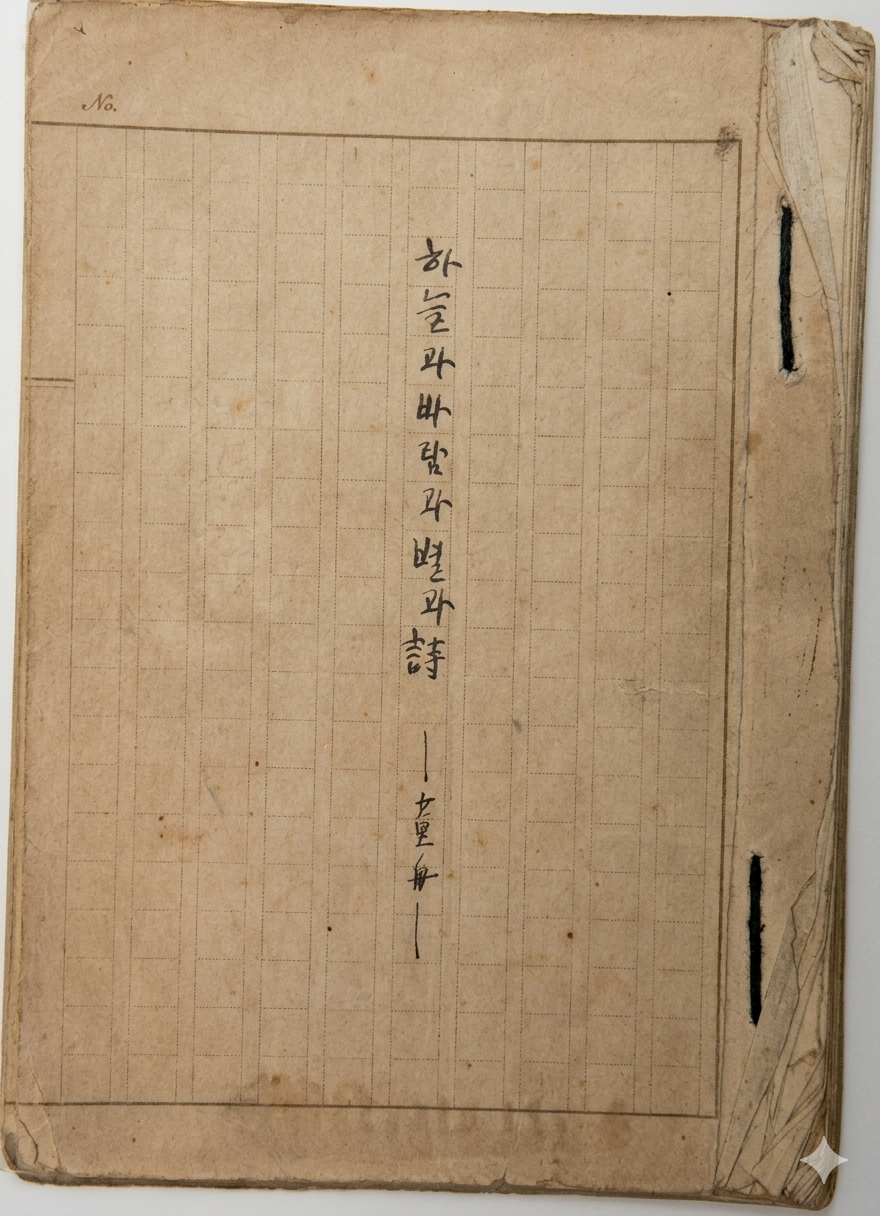 No.
하늘과바람과별과詩 — 童舟 —